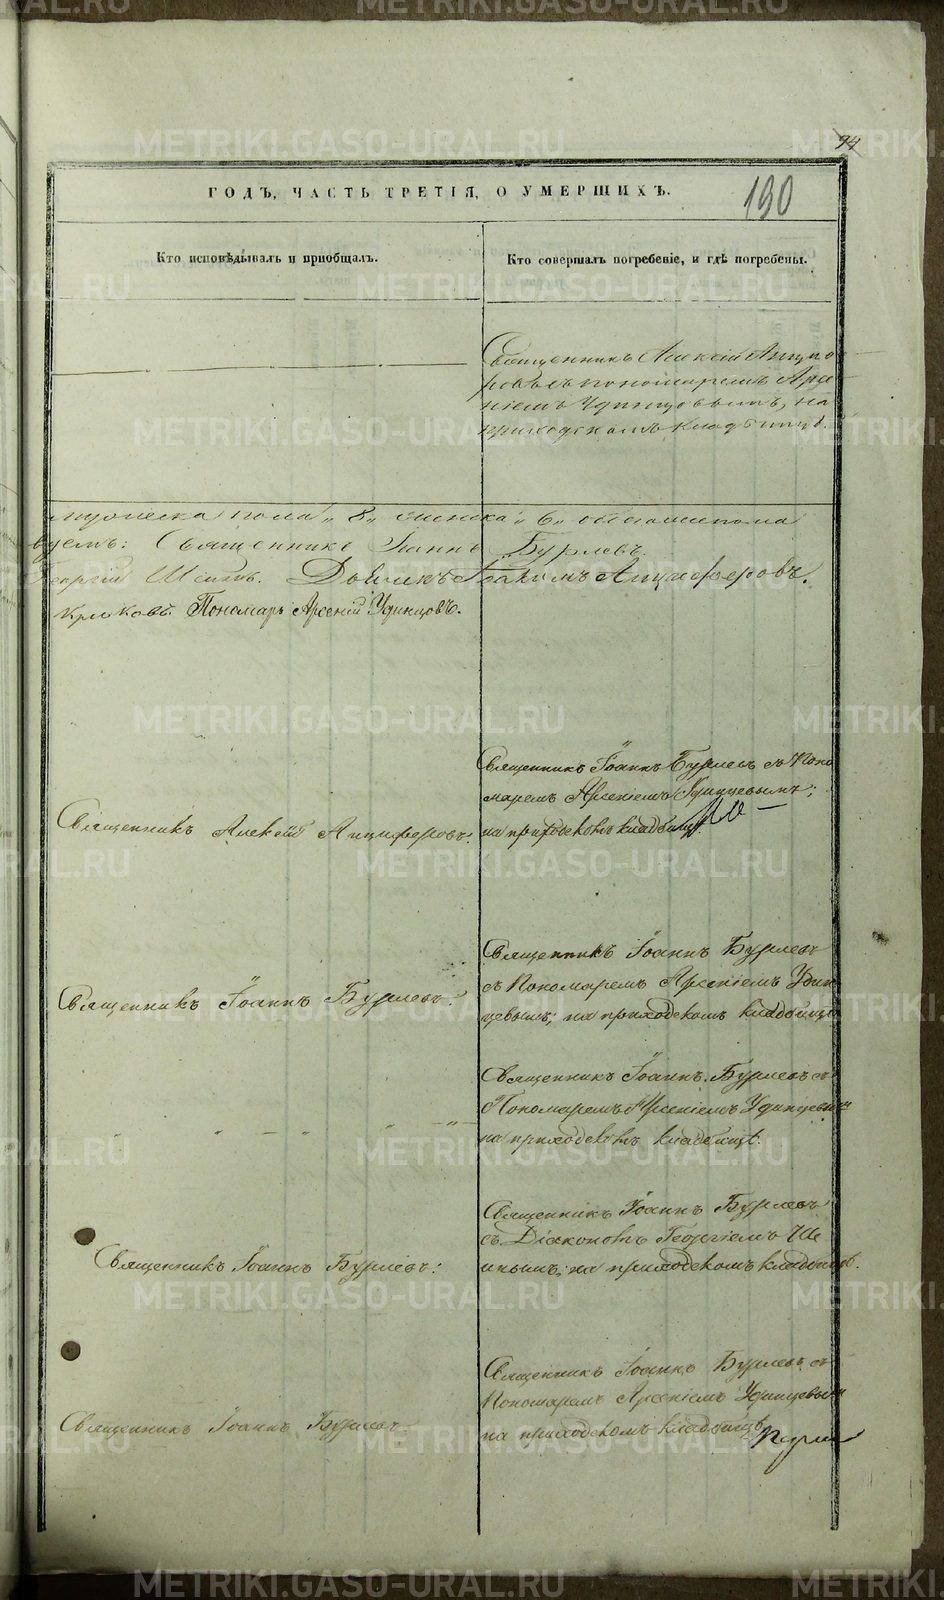 94
ГОДЪ, ЧАСТЬ ТРЕТІЯ, О УМЕРШИХЪ.
190
Кто исповѣдывалъ и пріобщалъ.
Кто совершалъ погребеніе, и гдѣ погребены.
Священникъ Алексій Анцифе
ровъ съ пономаремъ Арсе
ніемъ Удинцовымъ, на
приходскомъ кладбищѣ.
мужеска пола „8„ женска „6„ обоего пола
Священникъ Іоаннъ Бурлевъ.
Георгій Шеинъ. Дьячекъ Іоакимъ Анциферовъ.
Пономарь Арсеній Удинцовъ.
Священникъ Алексѣй Анциферовъ.
Священникъ Іоаннъ Бурлевъ съ Поно
маремъ Арсеніемъ Удинцевымъ;
на приходскомъ кладбищѣ.
Священникъ Іоаннъ Бурлевъ.
Священникъ Іоаннъ Бурлевъ
съ Пономаремъ Арсеніемъ Удин
цевымъ; на приходскомъ кладбищѣ
„ — „ — „ — „
Священникъ Іоаннъ Бурлевъ съ
Пономаремъ Арсеніемъ Удинцевымъ
на приходскомъ кладбищѣ.
Священникъ Іоаннъ Бурлевъ:
Священникъ Іоаннъ Бурлевъ
съ Діакономъ Георгіемъ Ше
инымъ; на приходскомъ кладбищѣ.
Священникъ Іоаннъ Бурлевъ
Священникъ Іоаннъ Бурлевъ съ
Пономаремъ Арсеніемъ Удинцевымъ
на приходскомъ кладбищѣ
METRIKI.GASO-URAL.RU